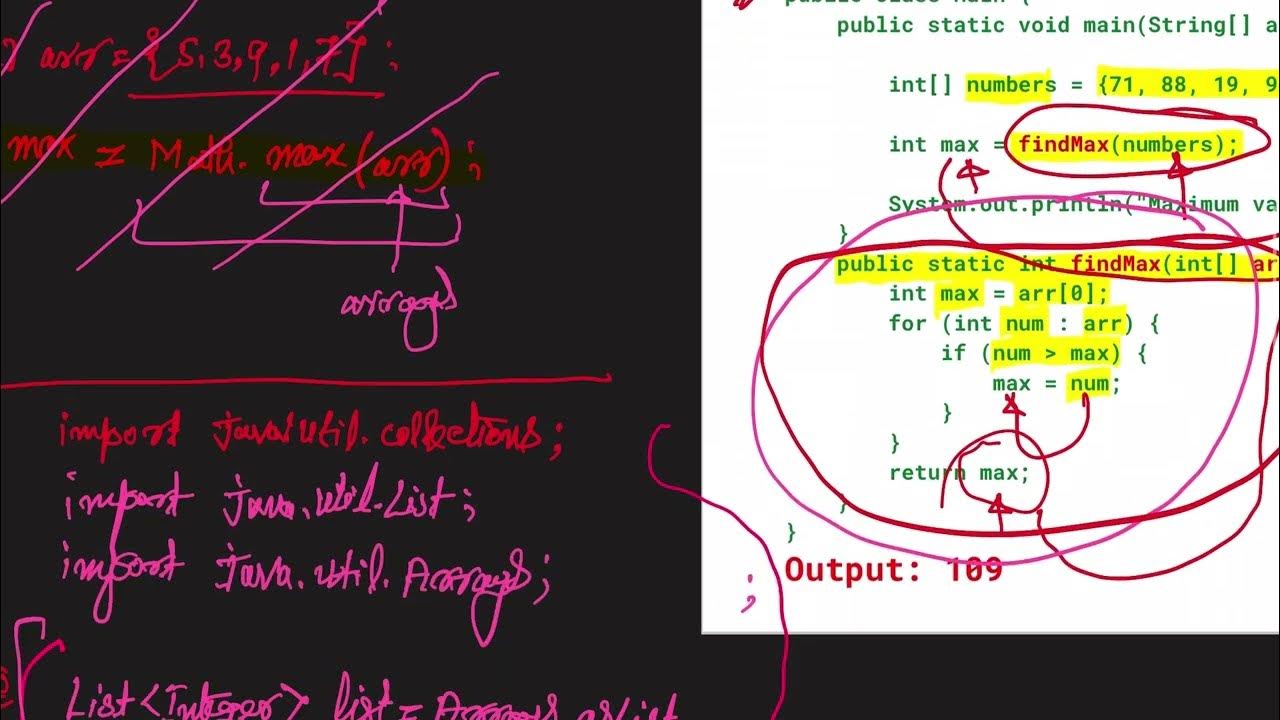 arr = {5,3,9,1,7};
max = Math.max(arr);
arrays
import java.util.collections;
import java.util.List;
import java.util.Arrays;
;
List<Integer> list = Arrays.asList
public class Main {
public static void main(String[] a
int[] numbers = {71, 88, 19, 9
int max = findMax(numbers);
System.out.println("Maximum va
}
public static int findMax(int[] ar
int max = arr[0];
for (int num : arr) {
if (num > max) {
max = num;
}
}
return max;
}
}
Output: 109